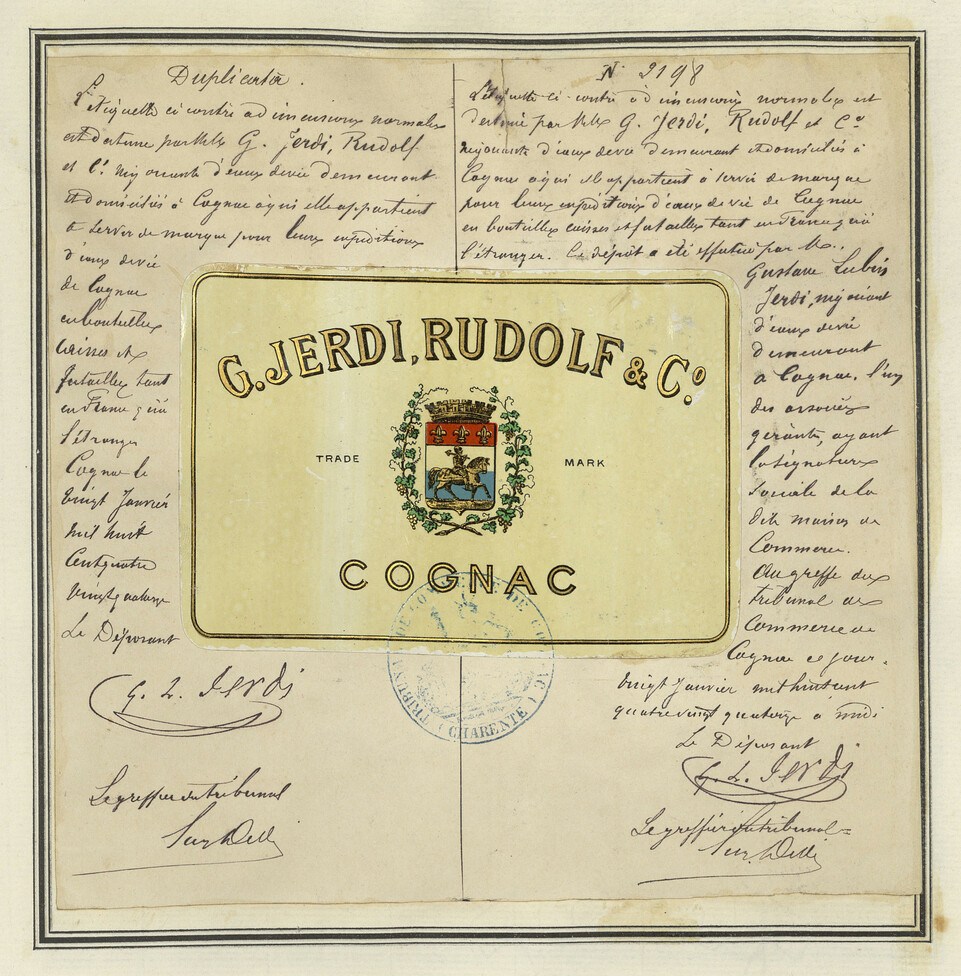 Duplicata.
L'étiquette ci contre a dimensions normales
est destinée par MMrs G. Jerdi, Rudolf
et Cie négociants d'eaux de vie demeurant
et domiciliés à Cognac à qui elle appartient
à servir de marque pour leurs expéditions
d'eaux de vie
de Cognac
en bouteilles
caisses et
futailles tant
en France qu'à
l'étranger
Cognac le
vingt Janvier
mil huit
cent quatre
vingt quatorze
Le Déposant
G. L. Jerdi
Le greffier du tribunal
No 2198
L'étiquette ci-contre à dimensions normales est
destinée par MMrs G. Jerdi, Rudolf et Co
négociants d'eaux de vie demeurant et domiciliés à
Cognac à qui elle appartient à servir de marque
pour leurs expéditions d'eaux de vie de Cognac
en bouteilles caisses et futailles tant en France qu'à
l'étranger. Ce dépôt a été effectué par M.
Gustave Lubin
Jerdi, négociant
d'eaux de vie
demeurant
à Cognac, l'un
des associés
gérants, ayant
la signature
sociale de la
dite maison de
Commerce.
Au greffe du
tribunal de
Commerce de
Cognac ce jour.
vingt Janvier mil huit cent
quatre vingt quatorze à midi
Le Déposant
G. L. Jerdi
Le greffier du tribunal
G. JERDI, RUDOLF & Co.
TRADE MARK
COGNAC
TRIBUNAL DE COMMERCE DE COGNAC
(CHARENTE)